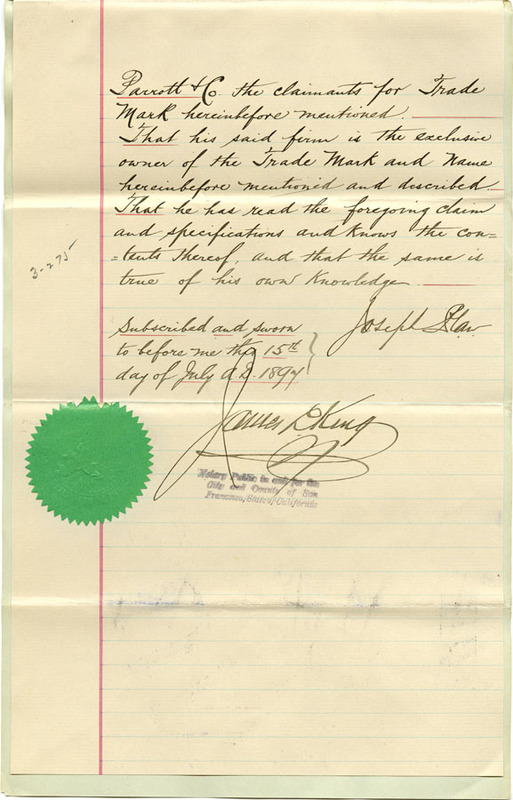 Parrott & Co. the claimants for Trade
Mark hereinbefore mentioned.
That his said firm is the exclusive
owner of the Trade Mark and Name
hereinbefore mentioned and described
That he has read the foregoing claim
and specifications and knows the con=
=tents thereof, and that the same is
true of his own knowledge.
3-275
Joseph
Subscribed and sworn
to before me this 15th
day of July A.D. 1897
James L. King
Notary Public in and for the
City and County of San
Francisco, State of California